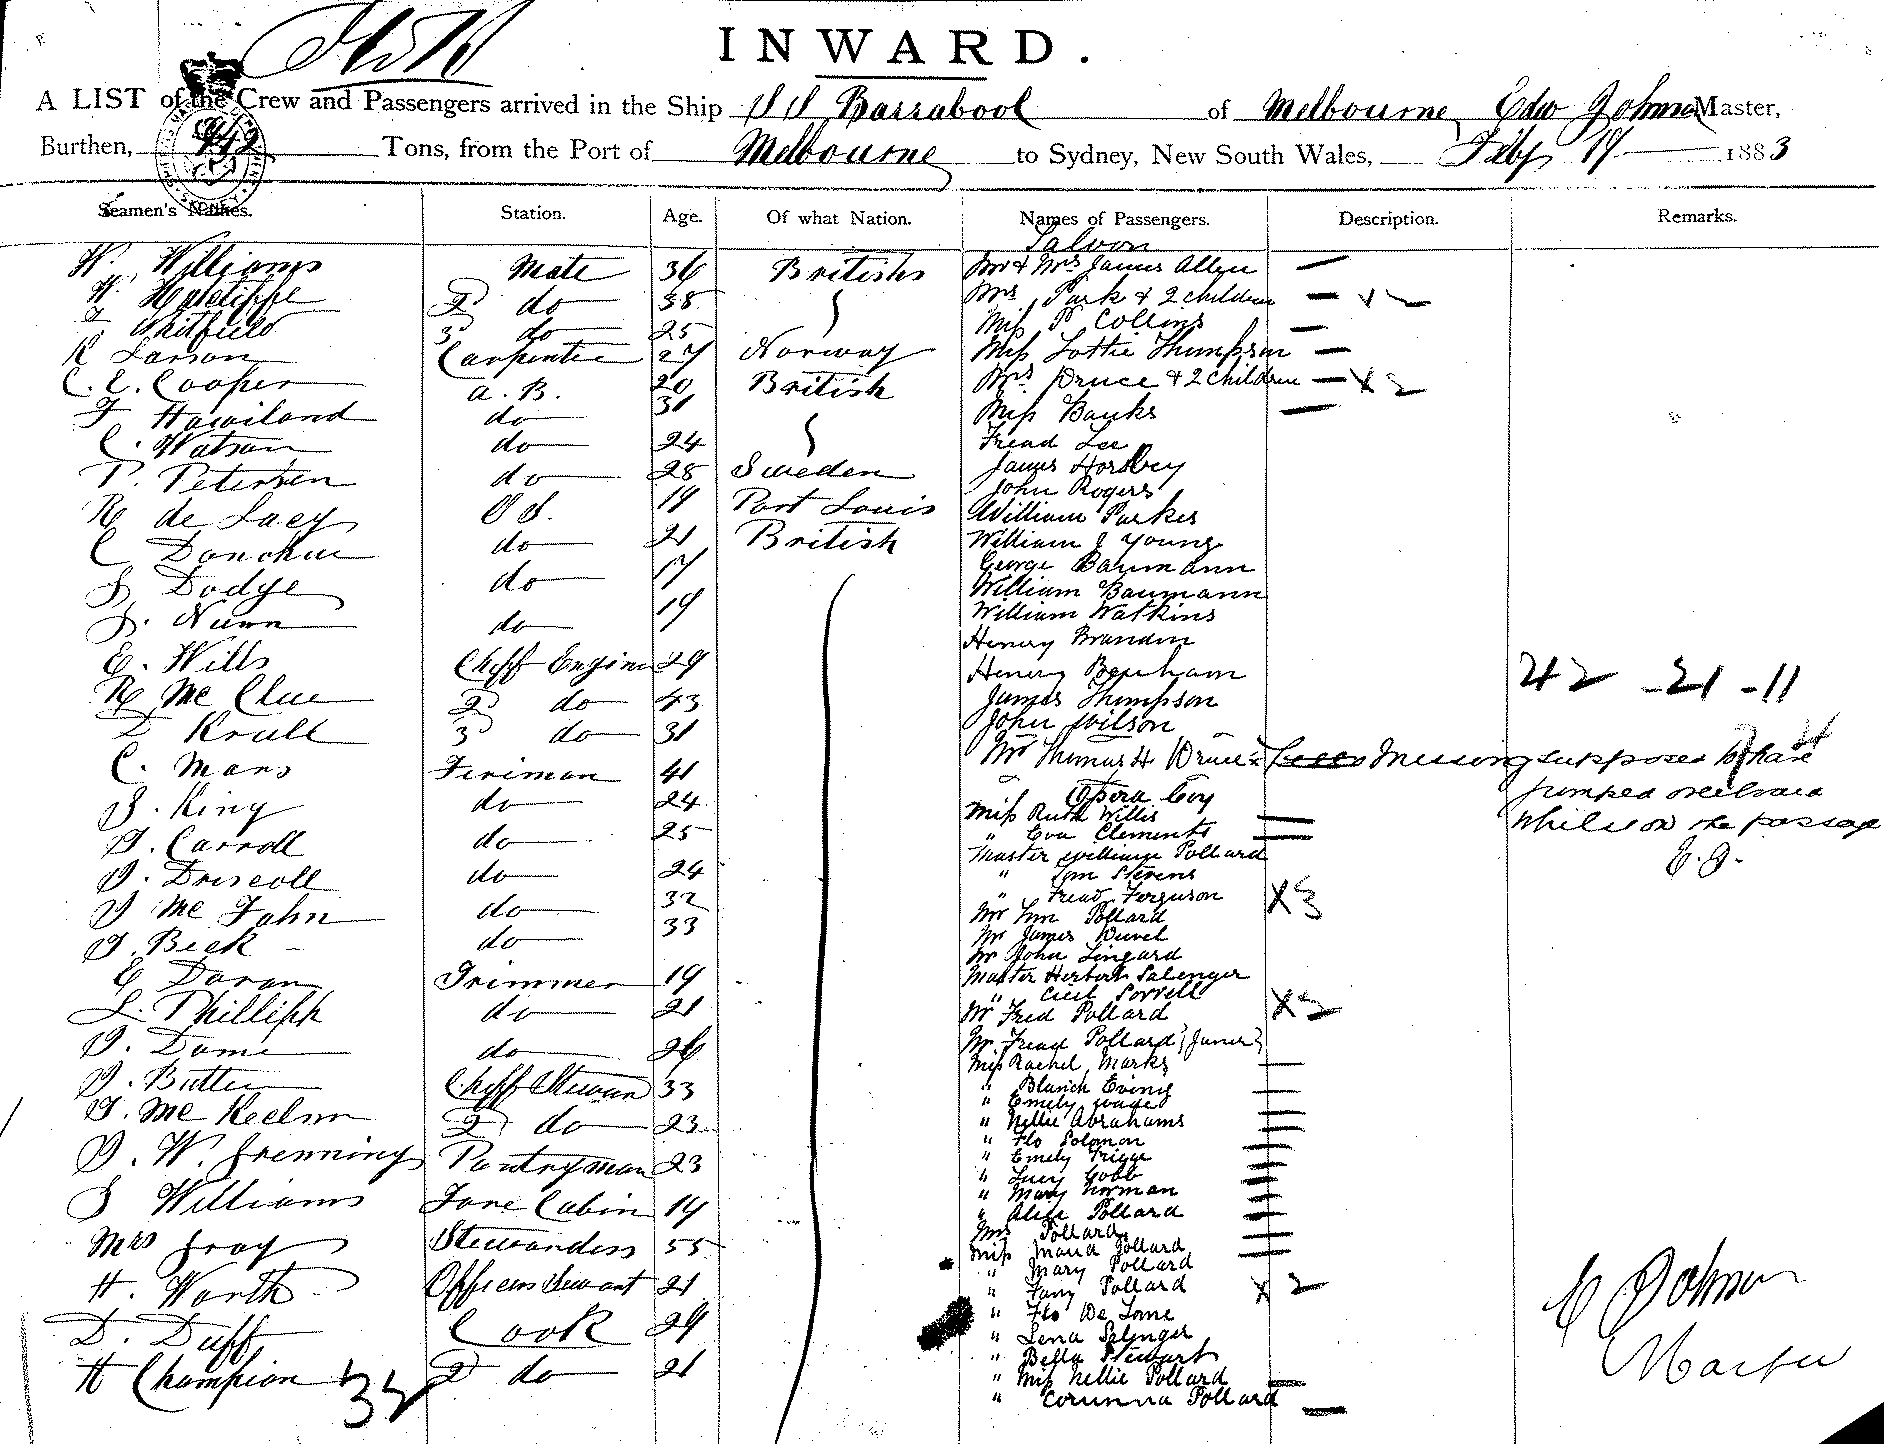 INWARD.
A LIST of the Crew and Passengers arrived in the Ship SS Barrabool of Melbourne, Edw Johnson Master,
Burthen, 942 Tons, from the Port of Melbourne to Sydney, New South Wales, Feby 17 1883
Seamen's Names. Station. Age. Of what Nation. Names of Passengers. Description. Remarks.
Saloon
W. Williams Mate 36 British Mr & Mrs James Allen
2 do 38 Mrs Park & 2 children x 2
Whitfield 3 do 25 Miss P Collins
K Larson Carpenter 27 Norway Miss Lottie Thompson
C. E. Cooper A. B. 20 British Mrs Druce & 2 children x 2
F Haviland do 31 Miss Banks
C. Watson do 24 Fread Lee
P. Petersen do 28 Sweden James
John Rogers
R de Lacy O S. 19 Port Louis William Parkes
C Donohue do 21 British William J Young
George Baumann
J Dodge do 17 William Baumann
William Watkins
J. Nunn do 19 Henery Brandin
E. Wills Chief Engine 29 Henery Benham 42 - 21 - 11
R Mc Clue 2 do 43 James Thompson
D Krull 3 do 31 John Wilson
C. Mans Fireman 41 Mr Thomas H Druce Missing supposed to have
jumped overboard
J. King do 24 Opera Coy
Miss Ruth Willis whilst on the passage
J. Carroll do 25 " Eva Clements
E. J.
Master William Pollard
J. Driscoll do 24 " Tom Stevens
" Fread Ferguson x 3
J Mc do 32 Mr Tom Pollard
J. Beck do 33 Mr James
Mr John Lingard
E Doran Trimmer 19 Master Herbert Salenger
" Cecil Sorrell
L. Phillips do 21 Mr Fred Pollard x 2
J. Dame do 26 Mr Fread Pollard (Juner)
Miss Rachel Marks
J. Butler Chief Steward 33 " Blanch Ewing
" Emely
J. Mc 2 do 23 " Nellie Abrahams
" Flo Solomon
J. W. Grenning Pantryman 23 " Emely
" Lucy Cobb
" Mary Norman
J Williams Fore Cabin 19 " Alice Pollard
Mrs Pollard
Mrs Gray Stewardess 55 Miss Maud Pollard
" Mary Pollard
H. Worth Officers Servant 21 " Fany Pollard x 2
" Flo De Lorne
D. Duff Cook 29 " Lena Salinger
" Bella Stewart
H Champion 2 do 21 " Miss Nellie Pollard
" Corunna Pollard
E Johnson
Master